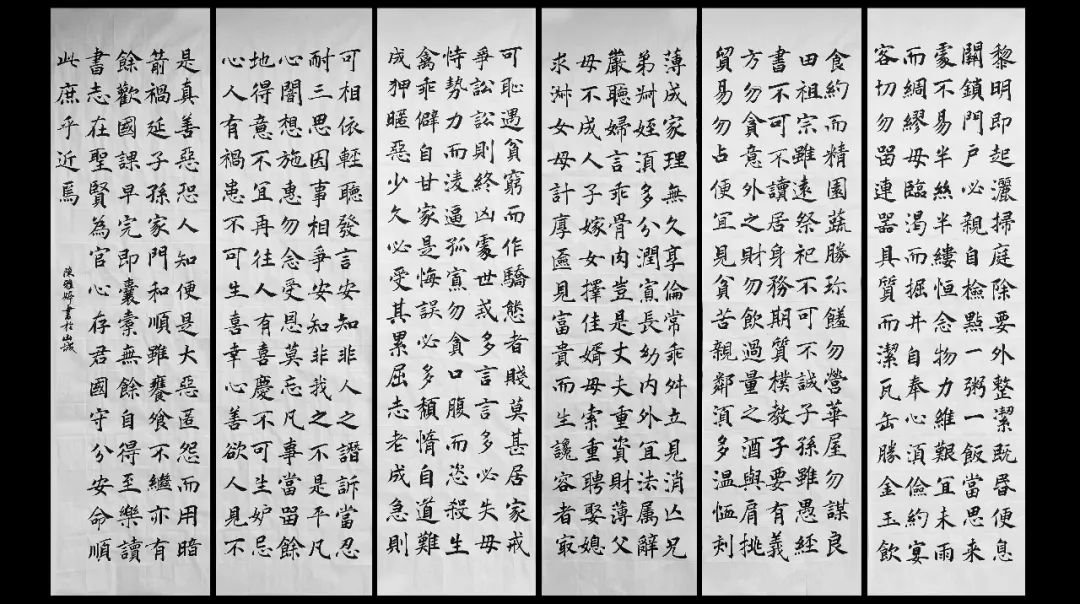 黎明即起灑掃庭除要外整潔既昬便息
關鎖門戶必親自檢點一粥一飯當思来
處不易半絲半縷恒念物力維艱宜未雨
而綢繆毋臨渴而掘井自奉心須儉約宴
客切勿畱連器具質而潔瓦缶勝金玉飲
食約而精園蔬勝珎饈勿營華屋勿謀良
田祖宗雖遠祭祀不可不誠子孫雖愚経
書不可不讀居身務期質樸教子要有義
方勿貪意外之財勿飲過量之酒與肩挑
貿易勿占便宜見貧苦親鄰須多温恤刻
薄成家理無久享倫常乖舛立見消亡兄
弟叔姪須多分潤寡長幼內外宜法属辭
嚴聽婦言乖骨肉豈是丈夫重資財薄父
母不成人子嫁女擇佳婿毋索重聘娶媳
求淑女毋計厚奩見富貴而生讒容者㝡
可恥遇貧窮而作驕態者賤莫甚居家戒
爭訟訟則終凶處世戒多言言多必失毋
恃勢力而淩逼孤寡勿貪口腹而恣殺生
禽乖僻自甘家是悔誤必多頹惰自道難
成狎暱惡少久必受其累屈志老成急則
可相依輕聽發言安知非人之譖訴當忍
耐三思因事相爭安知非我之不是平凡
心闇想施惠勿念受恩莫忘凡事當畱餘
地得意不宜再往人有喜慶不可生妒忌
心人有禍患不可生喜幸心善欲人見不
是真善惡恐人知便是大惡匿怨而用暗
箭禍延子孫家門和順雖饔飧不繼亦有
餘歡國課早完即囊橐無餘自得至樂讀
書志在聖賢為官心存君國守分安命順
此庶乎近焉
陳雅婷書於山城